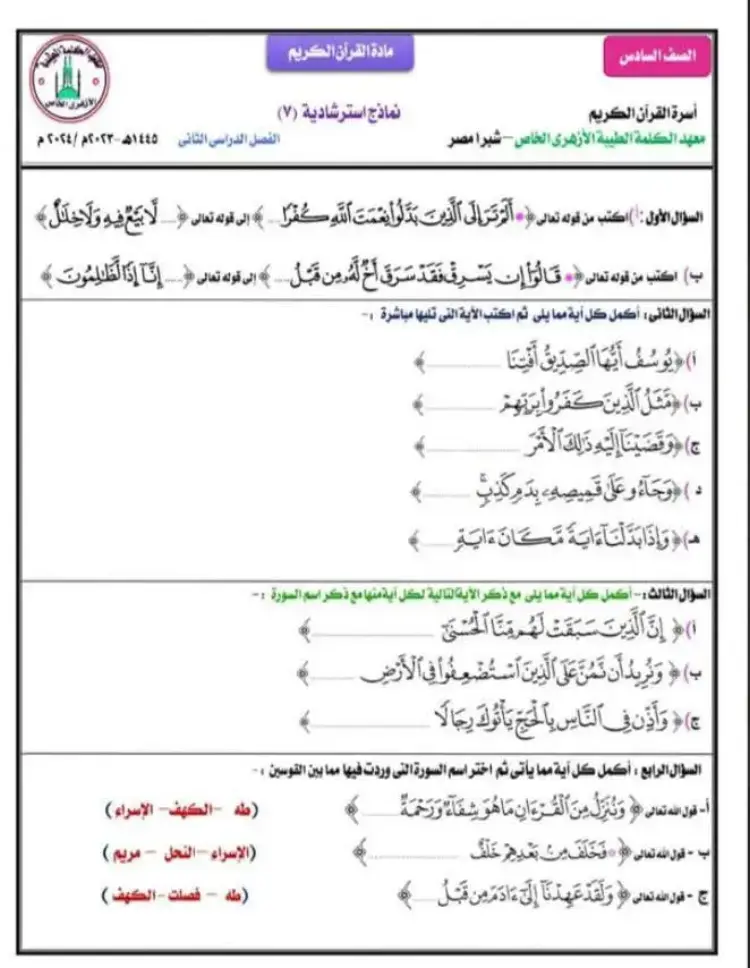 الصف السادس
مادة القرآن الكريم
أسرة القرآن الكريم
نماذج استرشادية (٧)
معهد الكلمة الطيبة الأزهرى الخاص – شبرا مصر
الفصل الدراسى الثانى
١٤٤٥هـ -٢٠٢٣م /٢٠٢٤ م
السؤال الأول : أ) اكتب من قوله تعالى ﴿ أَلَمْ تَرَ إِلَى ٱلَّذِينَ بَدَّلُوا۟ نِعْمَتَ ٱللَّهِ كُفْرًا ... ﴾ إلى قوله تعالى ﴿ .... لَّا بَيْعٌ فِيهِ وَلَا خِلَـٰلٌ ﴾
ب) اكتب من قوله تعالى ﴿ قَالُوٓا۟ إِن يَسْرِقْ فَقَدْ سَرَقَ أَخٌ لَّهُۥ مِن قَبْلُ .... ﴾ إلى قوله تعالى ﴿ .... إِنَّآ إِذًا لَّظَـٰلِمُونَ ﴾
السؤال الثانى : أكمل كل آية مما يلى ثم اكتب الآية التى تليها مباشرة : -
أ) ﴿ يُوسُفُ أَيُّهَا ٱلصِّدِّيقُ أَفْتِنَا ............ ﴾
ب) ﴿ مَّثَلُ ٱلَّذِينَ كَفَرُوا۟ بِرَبِّهِمْ ............ ﴾
ج) ﴿ وَقَضَيْنَآ إِلَيْهِ ذَٰلِكَ ٱلْأَمْرَ ............ ﴾
د ) ﴿ وَجَآءُو عَلَىٰ قَمِيصِهِۦ بِدَمٍ كَذِبٍ ........ ﴾
هـ) ﴿ وَإِذَا بَدَّلْنَآ ءَايَةً مَّكَانَ ءَايَةٍ ...... ﴾
السؤال الثالث : - أكمل كل آية مما يلى مع ذكر الآية التالية لكل آية منها مع ذكر اسم السورة : -
أ) ﴿ إِنَّ ٱلَّذِينَ سَبَقَتْ لَهُم مِّنَّا ٱلْحُسْنَىٰٓ .................. ﴾
ب) ﴿ وَنُرِيدُ أَن نَّمُنَّ عَلَى ٱلَّذِينَ ٱسْتُضْعِفُوا۟ فِى ٱلْأَرْضِ ........ ﴾
ج) ﴿ وَأَذِّن فِى ٱلنَّاسِ بِٱلْحَجِّ يَأْتُوكَ رِجَالًا .................. ﴾
السؤال الرابع : أكمل كل آية مما يأتى ثم اختر اسم السورة التى وردت فيها مما بين القوسين : -
أ- قول الله تعالى ﴿ وَنُنَزِّلُ مِنَ ٱلْقُرْءَانِ مَا هُوَ شِفَآءٌ وَرَحْمَةٌ ........ ﴾ (طه – الكهف – الإسراء )
ب - قول الله تعالى ﴿ فَخَلَفَ مِنۢ بَعْدِهِمْ خَلْفٌ .............. ﴾ (الإسراء – النحل – مريم )
ج - قول الله تعالى ﴿ وَلَقَدْ عَهِدْنَآ إِلَىٰٓ ءَادَمَ مِن قَبْلُ ...... ﴾ (طه – فصلت – الكهف )